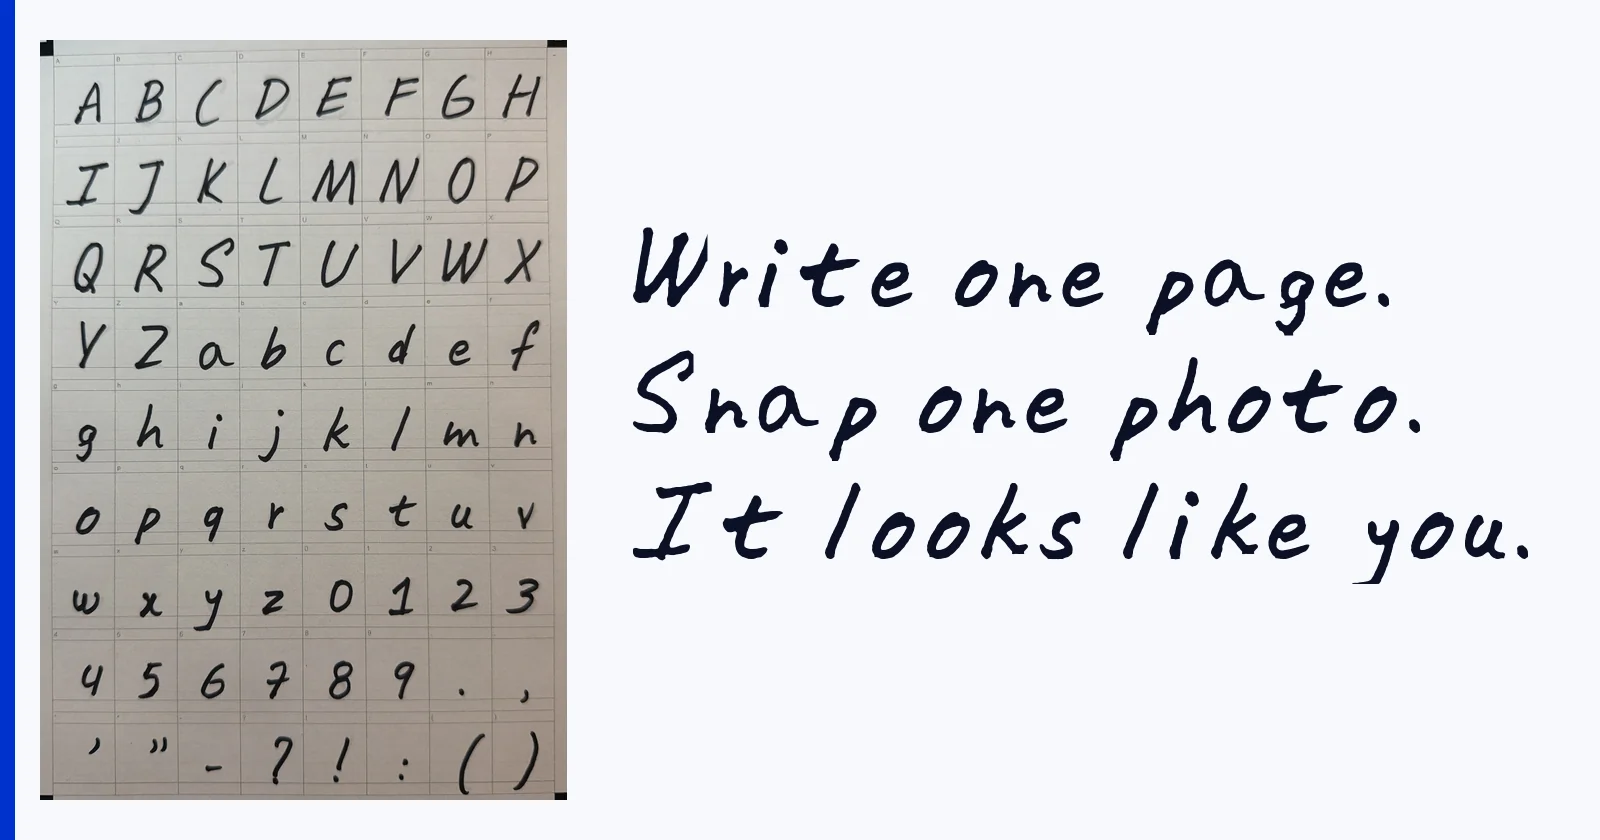 A B C D E F G H
I J K L M N O P
Q R S T U V W X
Y Z a b c d e f
g h i j k l m n
o p q r s t u v
w x y z 0 1 2 3
4 5 6 7 8 9 . ,
’ ” - ? ! : ( )
Write one page.
Snap one photo.
It looks like you.